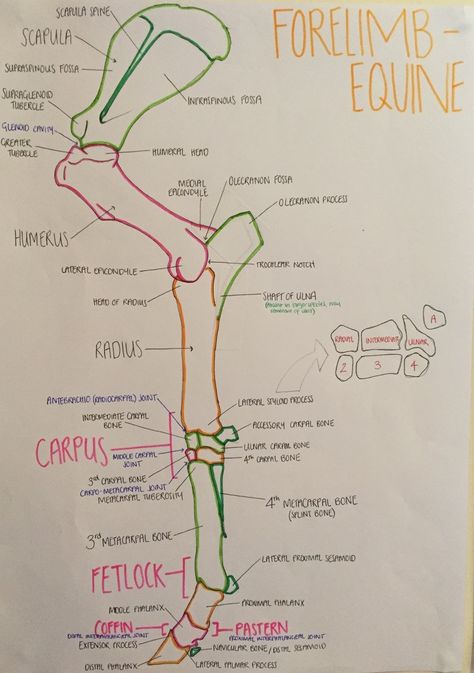 FORELIMB -
EQUINE
SCAPULA SPINE
SCAPULA
SUPRASPINOUS FOSSA
INFRASPINOUS FOSSA
SUPRAGLENOID
TUBERCLE
GLENOID CAVITY
GREATER
TUBERCLE
HUMERAL HEAD
MEDIAL
EPICONDYLE
OLECRANON FOSSA
OLECRANON PROCESS
HUMERUS
TROCHLEAR NOTCH
LATERAL EPICONDYLE
HEAD OF RADIUS
SHAFT OF ULNA
RADIUS
A
RADIAL
INTERMEDIATE
ULNAR
2
3
4
LATERAL STYLOID PROCESS
ANTEBRACHIO (RADIOCARPAL) JOINT
INTERMEDIATE CARPAL
BONE
ACCESSORY CARPAL BONE
CARPUS
MIDDLE CARPAL
JOINT
ULNAR CARPAL BONE
4th CARPAL BONE
3rd CARPAL BONE
CARPO-METACARPAL JOINT
METACARPAL TUBEROSITY
4th METACARPAL BONE
(SPLINT BONE)
3rd METACARPAL BONE
LATERAL PROXIMAL SESAMOID
FETLOCK
MIDDLE PHALANX
PROXIMAL PHALANX
COFFIN
DISTAL INTERPHALANGEAL JOINT
PASTERN
PROXIMAL INTERPHALANGEAL JOINT
EXTENSOR PROCESS
NAVICULAR BONE / DISTAL SESAMOID
DISTAL PHALANX
LATERAL PALMAR PROCESS